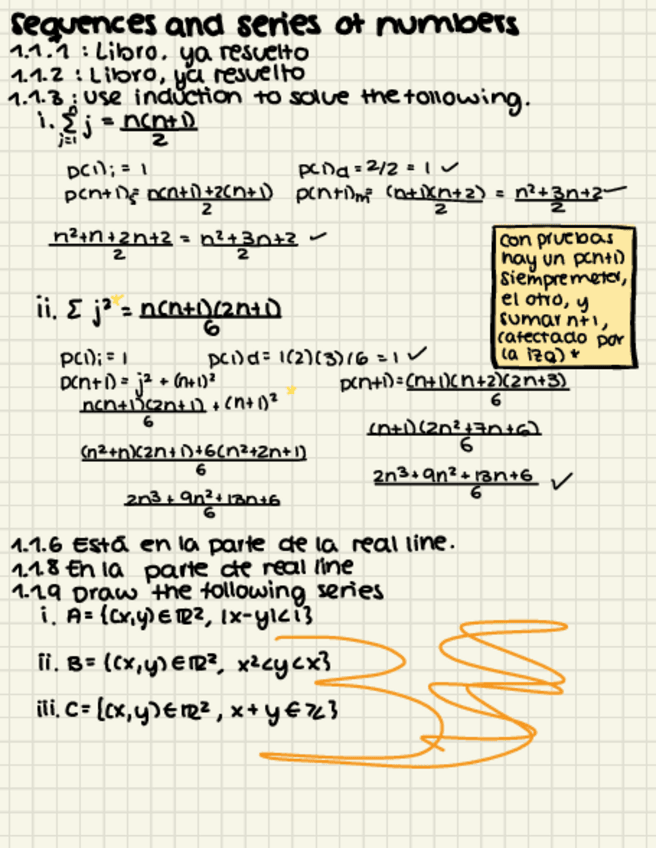 Sequences and series of numbers
1.1.1 : Libro. ya resuelto
1.1.2 : Libro, ya resuelto
1.1.3 : Use induction to solve the following.
i. n Σ j=1 j = n(n+1)/2
p(1)i = 1 p(1)d = 2/2 = 1 ✓
p(n+1)i = n(n+1)+2(n+1)/2 p(n+1)m = (n+1)(n+2)/2 = n²+3n+2/2
n²+n+2n+2/2 = n²+3n+2/2 ✓
con pruebas
hay un p(n+1)
siempre meter,
el otro, y
sumar n+1,
(afectado por
la izq) *
ii. Σ j²* = n(n+1)(2n+1)/6
p(1)i = 1 p(1)d = 1(2)(3)/6 = 1 ✓
p(n+1) = j² + (n+1)² p(n+1) = (n+1)(n+2)(2n+3)/6
n(n+1)(2n+1)/6 + (n+1)² *
(n+1)(2n²+7n+6)/6
(n²+n)(2n+1)+6(n²+2n+1)/6
2n³+9n²+13n+6/6 ✓
2n³+9n²+13n+6/6
1.1.6 Está en la parte de la real line.
1.1.8 En la parte de real line
1.1.9 Draw the following series
i. A = {(x,y) ∈ ℝ², |x-y|<1}
ii. B = {(x,y) ∈ ℝ², x²<y<x}
iii. C = {(x,y) ∈ ℝ², x+y ∈ ℤ}